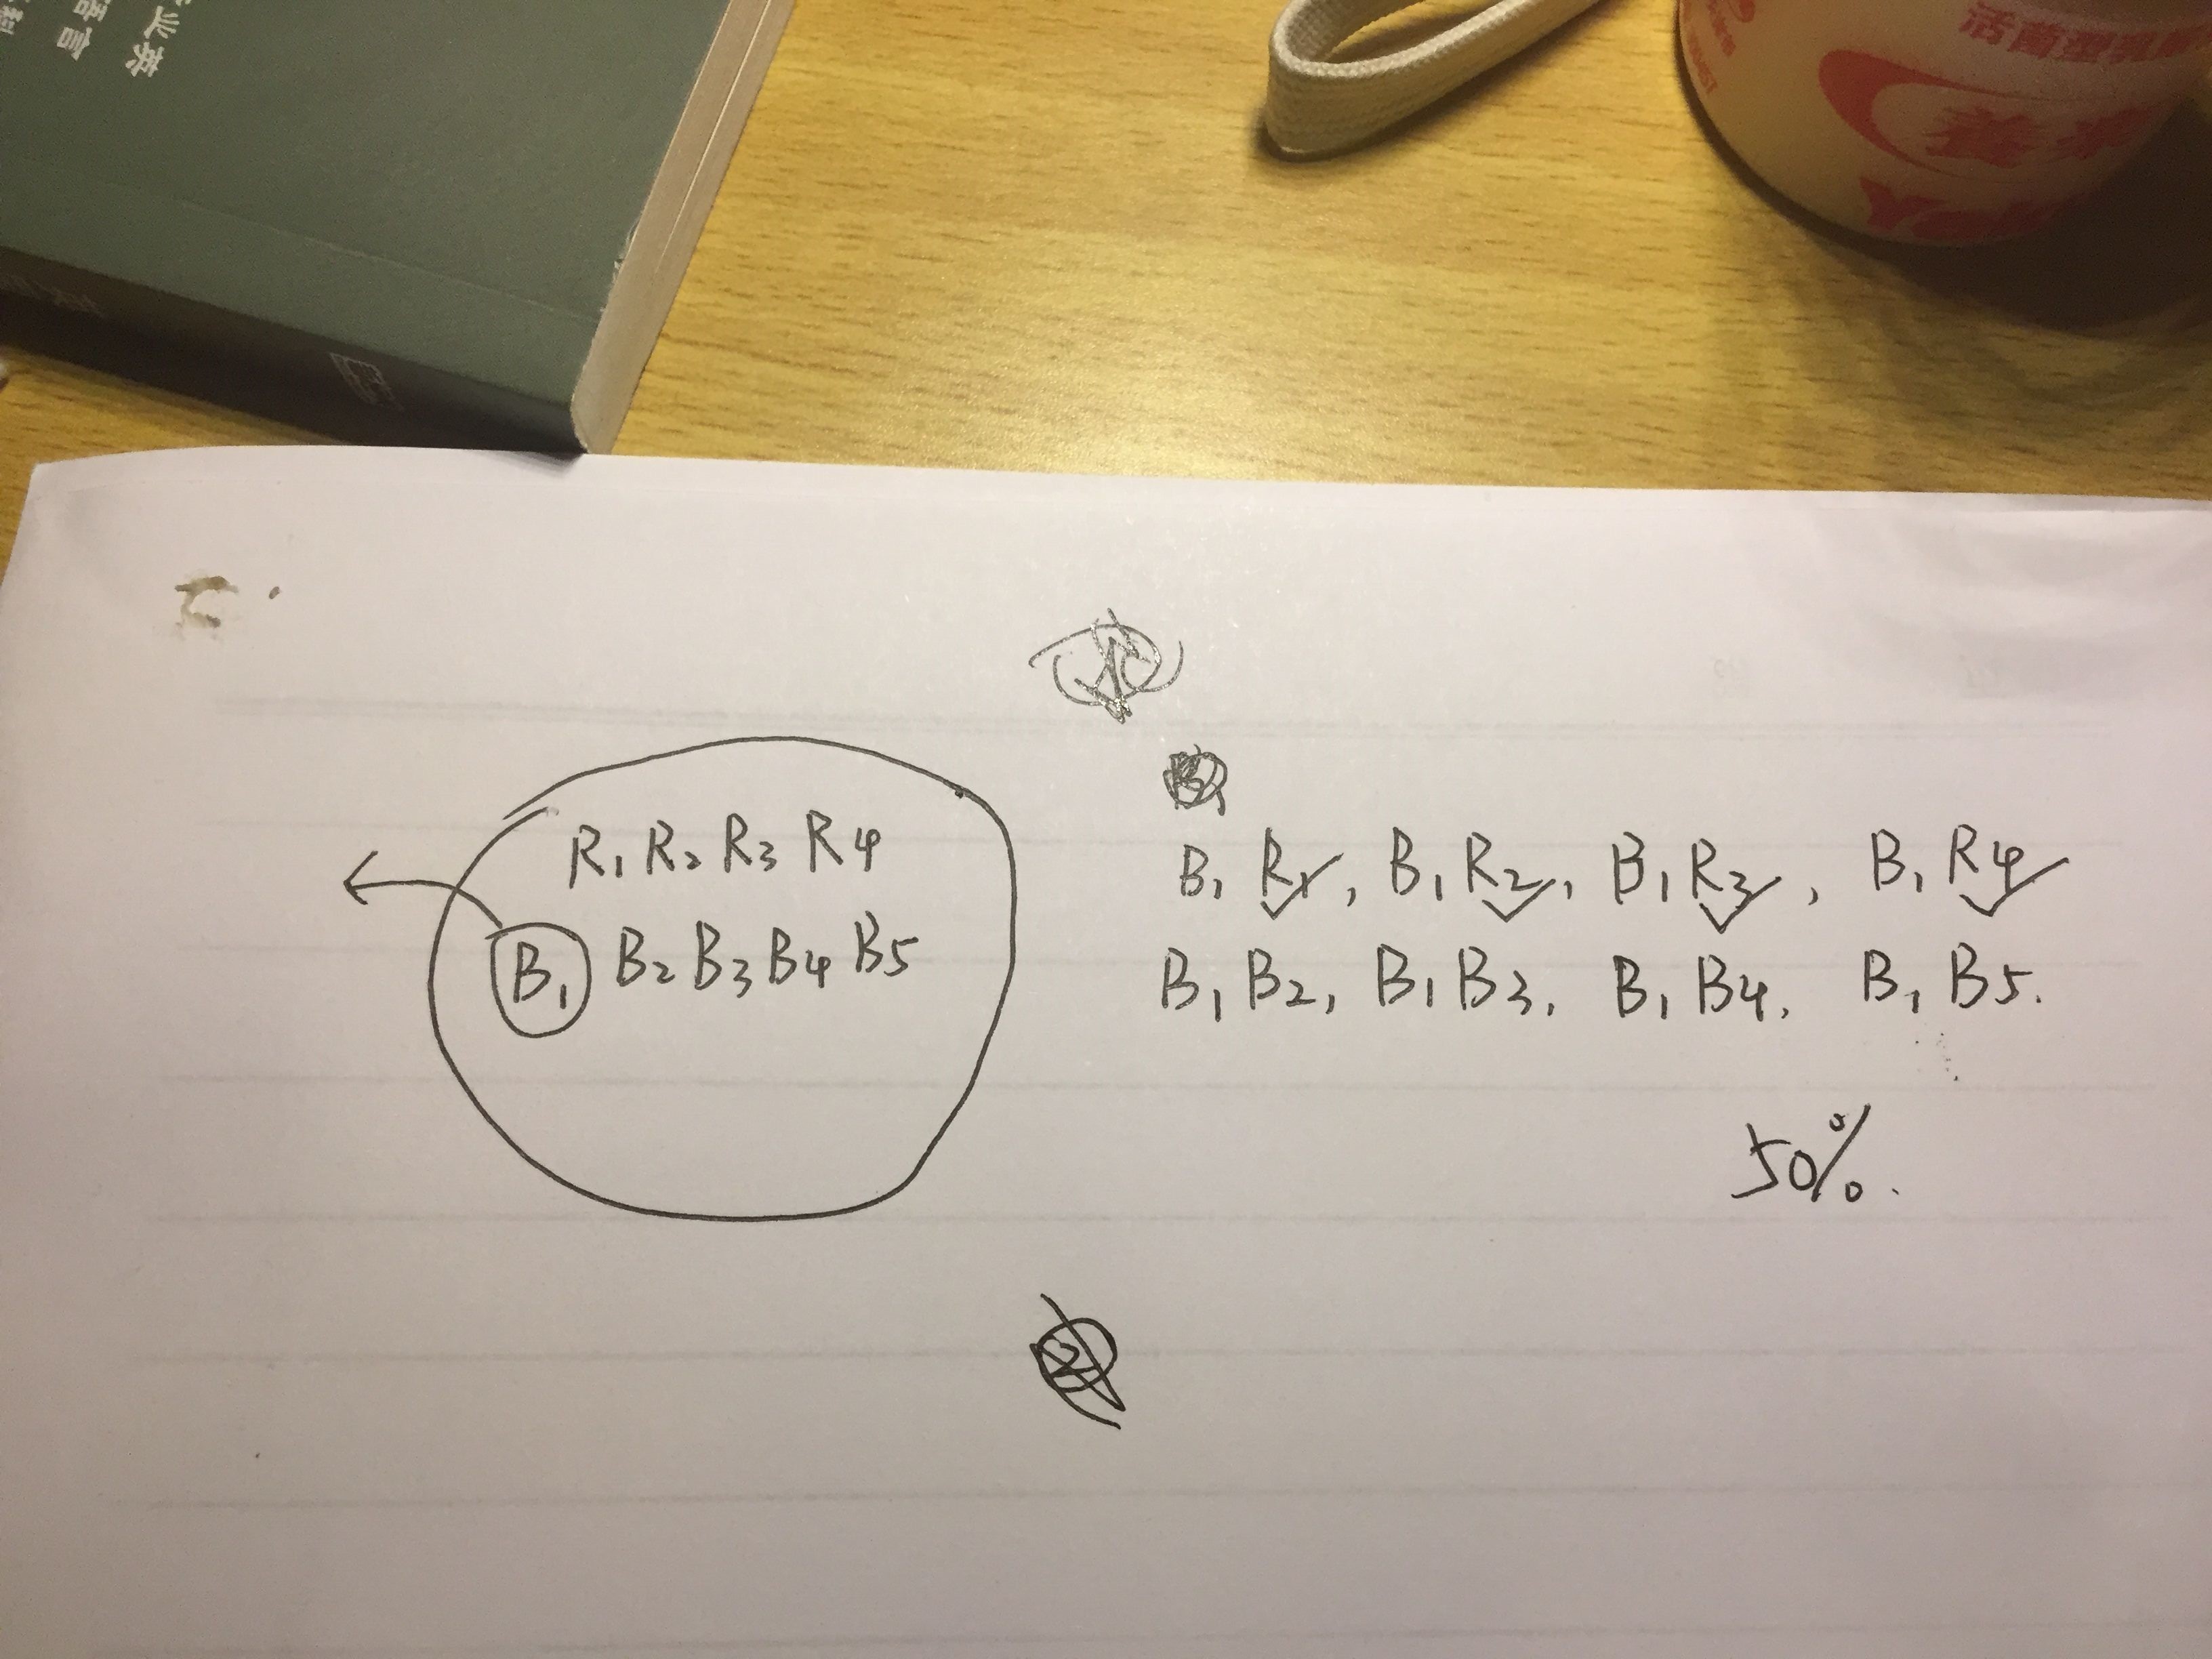 活菌型乳
R1 R2 R3 R4
B1 B2 B3 B4 B5
B1 R1, B1 R2, B1 R3, B1 R4
B1 B2, B1 B3, B1 B4, B1 B5.
50%.